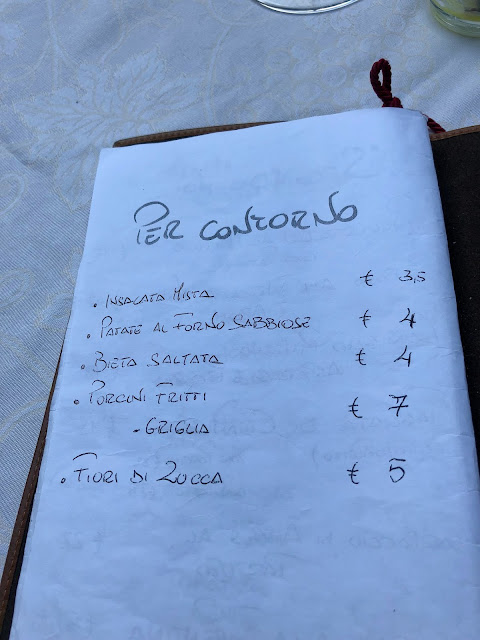 PER CONTORNO
• INSALATA MISTA € 3,5
• PATATE AL FORNO SABBIOSE € 4
• BIETA SALTATA € 4
• PORCINI FRITTI
- GRIGLIA € 7
• FIORI DI ZUCCA € 5